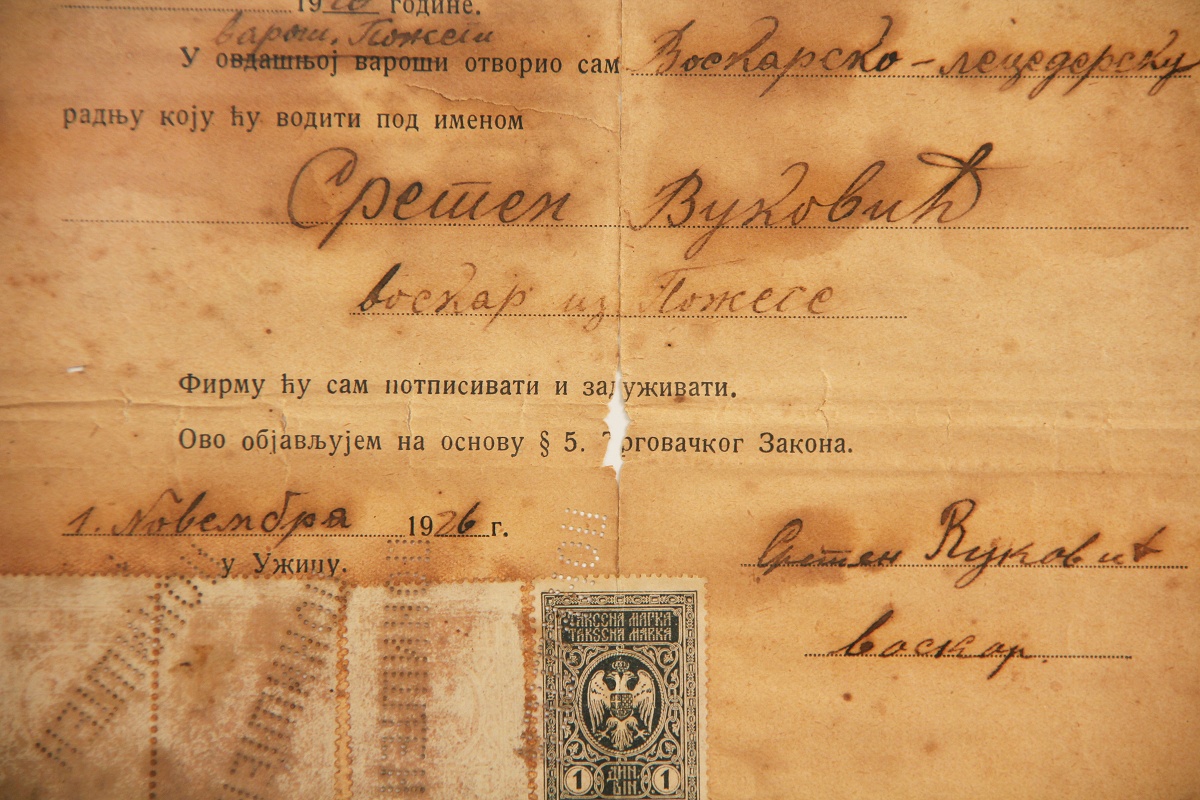 19 године.
варош. Пожеги
У овдашњој вароши отворио сам Воскарско-лецедерску
радњу коју ћу водити под именом
Сретен Вуковић
воскар из Пожеге
Фирму ћу сам потписивати и задуживати.
Ово објављујем на основу § 5. Трговачког Закона.
1. Новембра 1926 г.
у Ужицу.
Сретен Вуковић
воскар.
ТАКСЕНА МАРКА
TAKSENA MARKA
1 ДИН. 1
DIN.